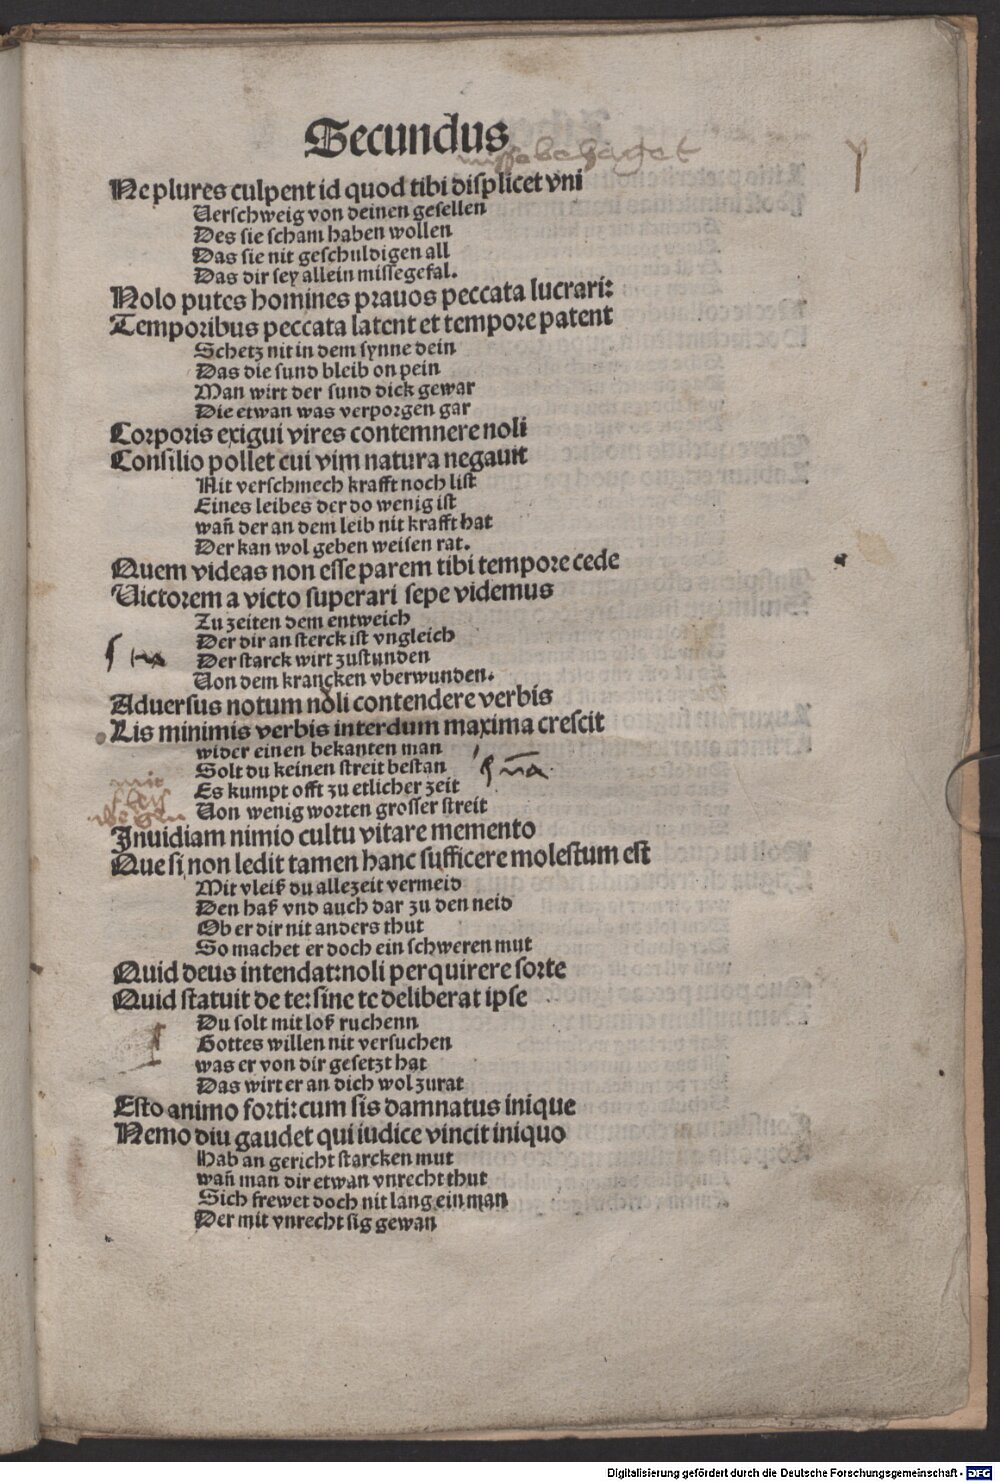 Secundus
missebehaget
Ne plures culpent id quod tibi displicet vni
Verschweig von deinen gesellen
Des sie scham haben wollen
Das sie nit geschuldigen all
Das dir sey allein missegefal.
Nolo putes homines prauos peccata lucrari:
Temporibus peccata latent et tempore patent
Schetz nit in dem synne dein
Das die sund bleib on pein
Man wirt der sund dick gewar
Die etwan was verporgen gar
Corporis exigui vires contemnere noli
Consilio pollet cui vim natura negauit
Nit verschmech krafft noch list
Eines leibes der do wenig ist
wañ der an dem leib nit krafft hat
Der kan wol geben weisen rat.
Quem videas non esse parem tibi tempore cede
Victorem a victo superari sepe videmus
Zu zeiten dem entweich
Der dir an sterck ist vngleich
Der starck wirt zustunden
Von dem krancken vberwunden.
Aduersus notum noli contendere verbis
Lis minimis verbis interdum maxima crescit
wider einen bekanten man
Solt du keinen streit bestan
Es kumpt offt zu etlicher zeit
Von wenig worten grosser streit
mit
Inuidiam nimio cultu vitare memento
Que si non ledit tamen hanc sufficere molestum est
Mit vleiß du allezeit vermeid
Den haß vnd auch dar zu den neid
Ob er dir nit anders thut
So machet er doch ein schweren mut
Quid deus intendat: noli perquirere sorte
Quid statuit de te: sine te deliberat ipse
Du solt mit loß ruchenn
Gottes willen nit versuchen
was er von dir gesetzt hat
Das wirt er an dich wol zurat
Esto animo forti: cum sis damnatus inique
Nemo diu gaudet qui iudice vincit iniquo
Hab an gericht starcken mut
wañ man dir etwan vnrecht thut
Sich frewet doch nit lang ein man
Der mit vnrecht sig gewan
Digitalisierung gefördert durch die Deutsche Forschungsgemeinschaft - DFG